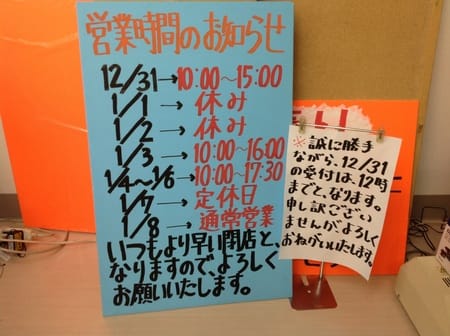 営業時間のお知らせ
12/31→10:00~15:00
1/1→休み
1/2→休み
1/3→10:00~16:00
1/4~1/6→10:00~17:30
1/7→定休日
1/8→通常営業
いつもより早い閉店と、
なりますので、よろしく
お願いいたします。
※誠に勝手
ながら、12/31
の受付は、12時
までとなります。
申し訳ござい
ませんがよろしく
おねがいいたします。